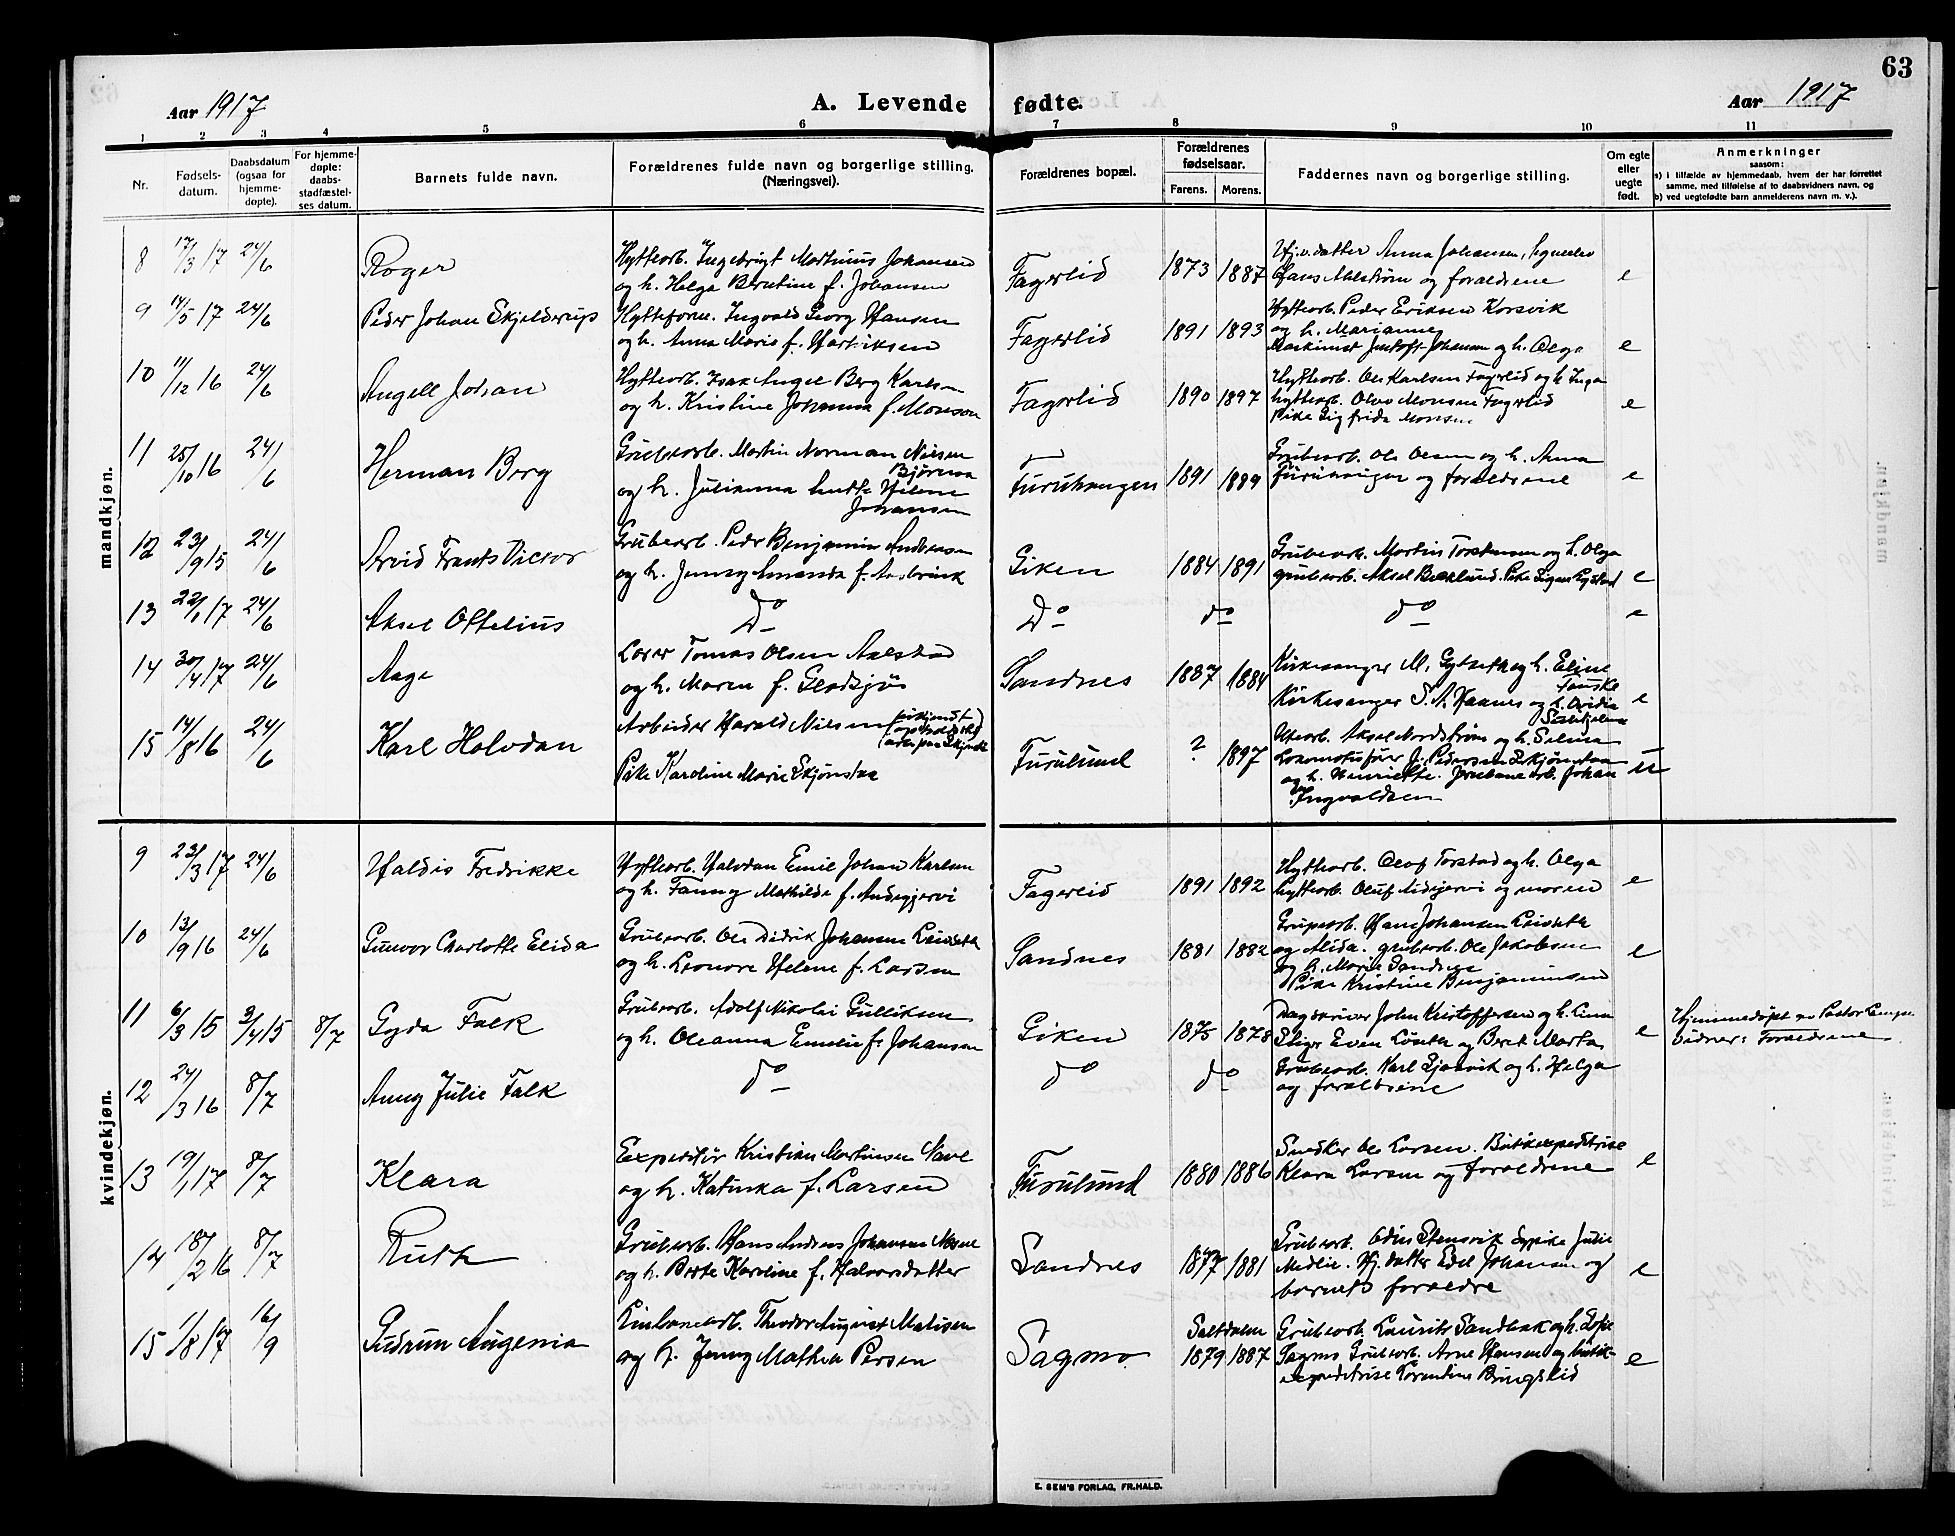 63
Aar 1917
A. Levende fødte.
Aar 1917
1 2 3 4 5 6 7 8 9 10 11
Nr.
Fødsels-
datum.
Daabsdatum
(ogsaa for
hjemme-
døpte).
For hjemme-
døpte:
daabs-
stadfæstel-
ses datum.
Barnets fulde navn.
Forældrenes fulde navn og borgerlige stilling.
(Næringsvei).
Forældrenes bopæl.
Forældrenes
fødselsaar.
Farens. Morens.
Faddernes navn og borgerlige stilling.
Om egte
eller
uegte
født.
Anmerkninger
saasom:
a) i tilfælde av hjemmedaab, hvem der har forrettet
samme, med tilføielse af to daabsvidners navn, og
b) ved uegtefødte barn anmelderens navn m. v.).
mandkjøn.
8 17/3 17 24/6 Roger
Hyttearb. Ingebrigt Martinius Johansen
og h. Helga Berntine f. Johansen
Fagerlid 1873 1887
Hj.v. datter Anna Johansen,
Hans Ahlstrøm og forældrene e
9 14/5 17 24/6 Peder Johan Skjelderup
Hytteform. Ingvald Georg Hansen
og h. Anna Marie f. Hartviksen
Fagerlid 1891 1893
Hytteorb. Peder Eriksen Korsvik
og h. Marianne
Maskinist Johansen og h. Olga e
10 11/12 16 24/6 Angell Johan
Hytteorb. Isak Angel Berg Karlsen
og h. Kristine Johanna f. Monsen
Fagerlid 1890 1897
Hytteorb. Ole Karlsen Fagerlid og h. Inga
hytteorb. Olav Monsen Fagerlid
Pike Sigfrida Monsen e
11 25/10 16 24/6 Herman Borg
Grubearb. Martin Norman Nilsen
Bjørnaa
og h. Julianna Helene
Johansen
Furuhaugen 1891 1889
Grubearb. Ole Olsen og h. Anna
Furuhaugen og forældrene e
12 23/9 15 24/6 Arvid Frants Victor
Grubearb. Peder Benjamin Andersen
og h. Jenny Amanda f.
Giken 1884 1891
Grubearb. Martin Torstensen og h. Olga
grubearb. Aksel Beklund. Pike e
13 22/1 17 24/6 Aksel Ottelius
Do Do do do e
14 30/4 17 24/6 Aage
Lærer Tomas Olsen Aalstad
og h. Maren f. Gladsjø
Sandnes 1887 1884
Kirkesanger M. Gylseth og h. Eline
Fauske
Kirkesanger S. A. Haanes og h. Ovidia
Sulitjelma e
15 14/8 16 24/6 Karl Halvdan
Arbeider Harald Nilsen
Pike Karoline Marie Skjønstaa
Furulund ? 1897
Akselnordstrøm og h. Selma
Lokomotivfører J. Pedersen Skjønstaa
og h. Henriette. Johan
Ingvaldsen u
kvindekjøn.
9 23/3 17 24/6 Haldis Fredrikke
Hytteorb. Halvdan Emil Johan Karlsen
og h. Fanny Mathilde f. Andsjgjervi
Fagerlid 1891 1892
Hytteorb. Olaf Torstad og h. Olga
hytteorb. Oluf Aidijervi og moren e
10 13/9 16 24/6 Gunvor Charlotte Elida
Grubearb. Ole Didrik Johansen Leivseth
og h. Leonore Helene f. Larsen
Sandnes 1881 1882
Grubearb. Hans Johansen Leivseth
og Alida. grubearb. Ole Jakobsen
og h. Marie Sandnes
Pike Kristine Benjaminsen e
11 6/3 15 3/4 15 8/7 Gyda Falk
Grubearb. Adolf Nikolai Gulliksen
og h. Oleanna Emelie f. Johansen
Giken 1875 1878
Dagskriver John Kristoffersen og h. Lina
Stiger Even Løseth og Beret Marta e
Hjemmedøpt av Pastor
Vidner: Forældrene
12 24/3 16 8/7 Anny Julie Falk
do do do
Grubearb. Karl Sjøsvik og h. Helga
og forældrene
13 19/1 17 8/7 Klara
Expeditør Kristian Martinsen Nave
og h. Katinka f. Larsen
Furulund 1880 1886
Snedker Ole Larsen. Butikexpeditrise
Klara Larsen og forældrene e
14 18/2 16 8/7 Ruth
Grubearb. Hans Andreas Johansen
og h. Berte Karoline f. Halvorsdatter
Sandnes 1877 1881
Grubearb. Odin Stensvik Julie
Medlie. Hj. datter Edel Johansen og
barnets forældre e
15 1/8 17 16/9 Gudrun Augenia
Theodor August Matisen
og h. Jenny Mathea Persen
Sagmo
Saltdalen
1879 1887
Grubearb. Laurits Sandbak og h.
Sagmo Grubearb. Arne Hansen og butik-
expeditrise Bringslid e
E. SEM'S FORLAG, FR.HALD.